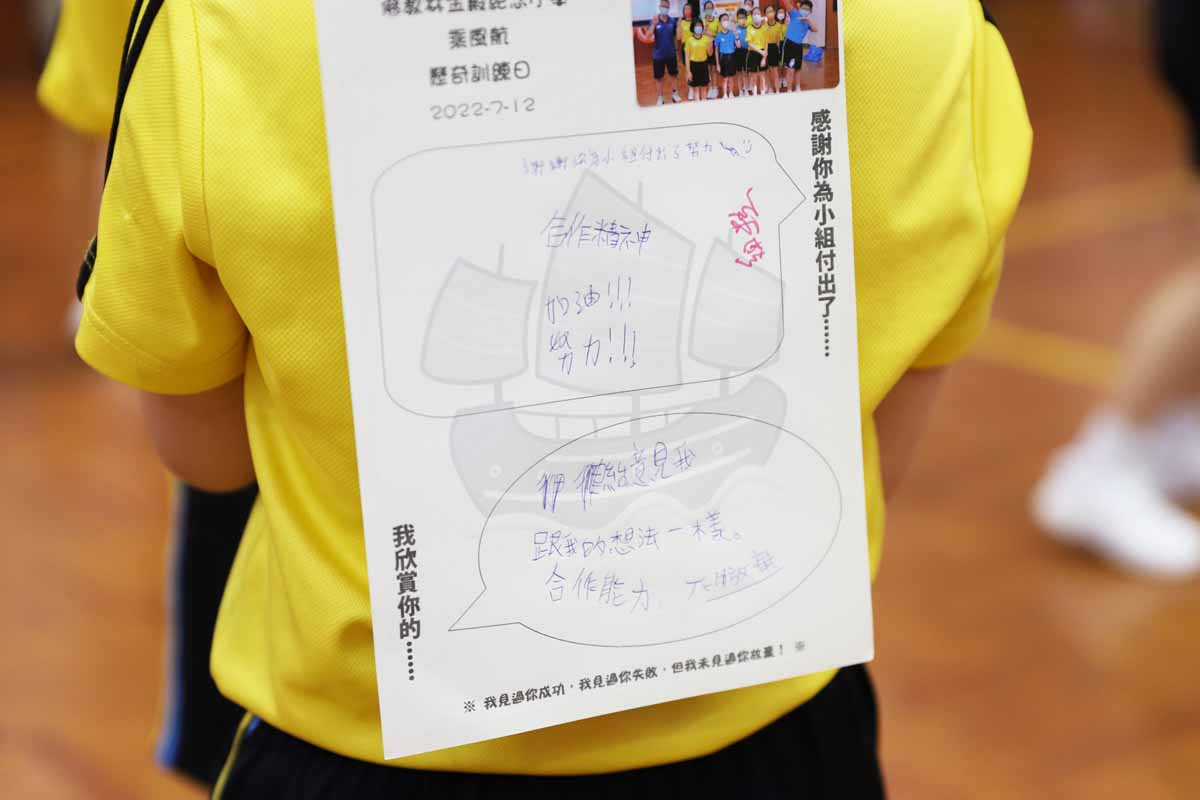 佛教林金殿紀念小學
乘風航
歷奇訓練日
2022-7-12
感謝你為小組付出了……
謝謝你為小組付出了努力
合作精神
加油!!!
努力!!!
我欣賞你的……
給意見我
跟我的想法一樣。
合作能力
※ 我見過你成功，我見過你失敗，但我未見過你放棄！ ※